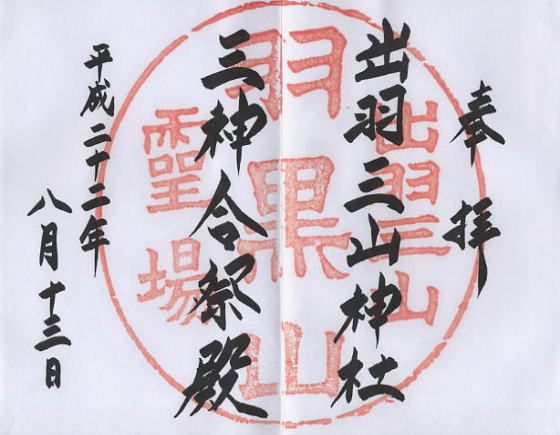 奉拝
出羽三山神社
三神合祭殿
平成二十二年
八月十三日
出羽三山
羽黒山
霊場